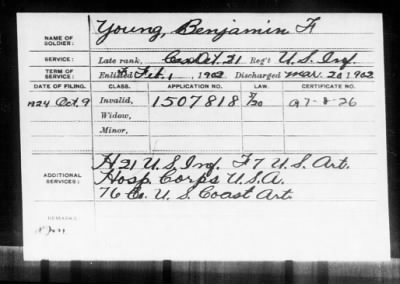 Young, Benjamin F
NAME OF SOLDIER:
SERVICE: Late rank, Det. 21 Reg't U.S. Inf.
TERM OF SERVICE: Enlisted Feb. 1, 1902 Discharged Mar. 20 1902
DATE OF FILING. CLASS. APPLICATION NO. LAW. CERTIFICATE NO.
1924 Oct. 9 Invalid, 1507818 9-8-26
Widow,
Minor,
ADDITIONAL SERVICES: H 21 U.S. Inf. F 7 U.S. Art.
Hosp. Corps U.S.A.
76 Co. U.S. Coast Art.
REMARKS: